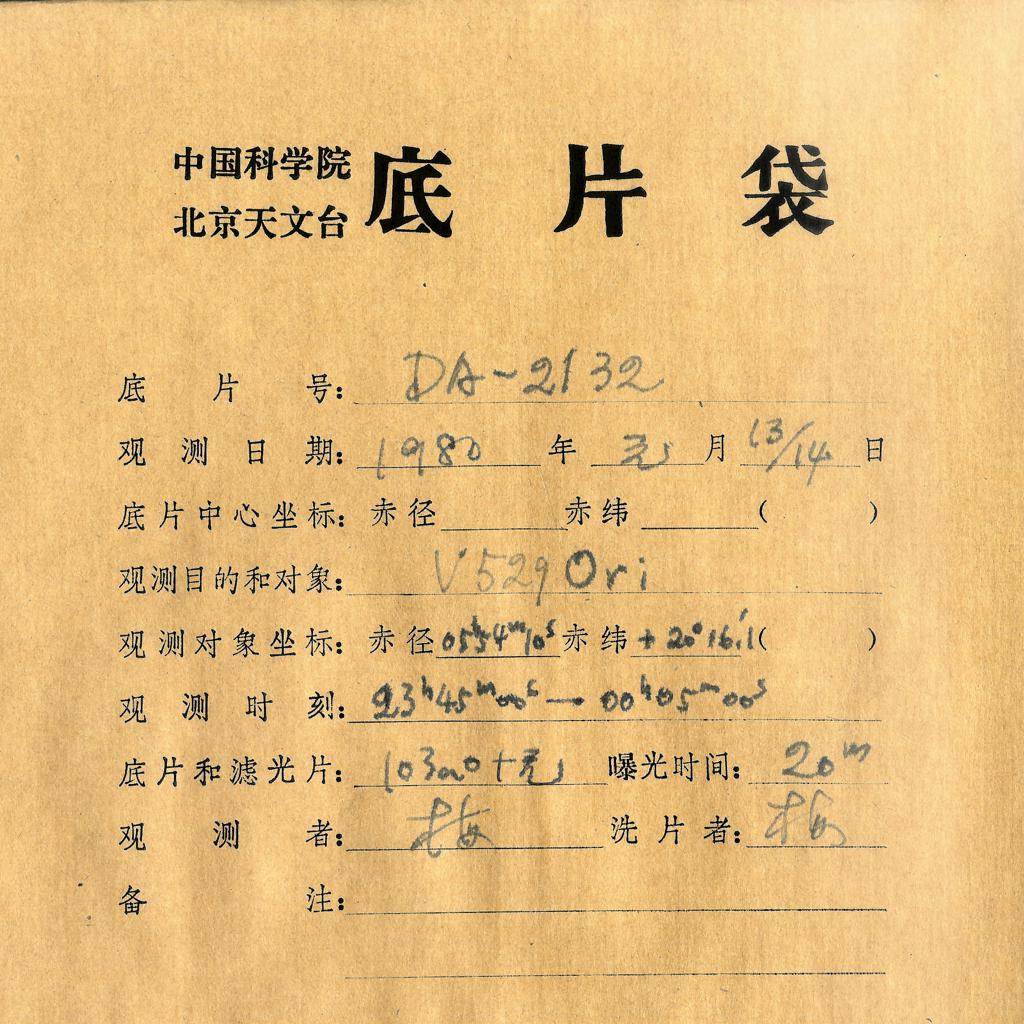 中国科学院
北京天文台
底片袋
底片号: DA-2132
观测日期: 1980 年 元 月 13/14 日
底片中心坐标: 赤径 赤纬 ( )
观测目的和对象: V529 Ori
观测对象坐标: 赤径 05ʰ54ᵐ10ˢ 赤纬 +20°16.′1 ( )
观测时刻: 23ʰ45ᵐ00ˢ — 00ʰ05ᵐ00ˢ
底片和滤光片: 103aO+无 曝光时间: 20ᵐ
观测者: 梅 洗片者: 梅
备注: